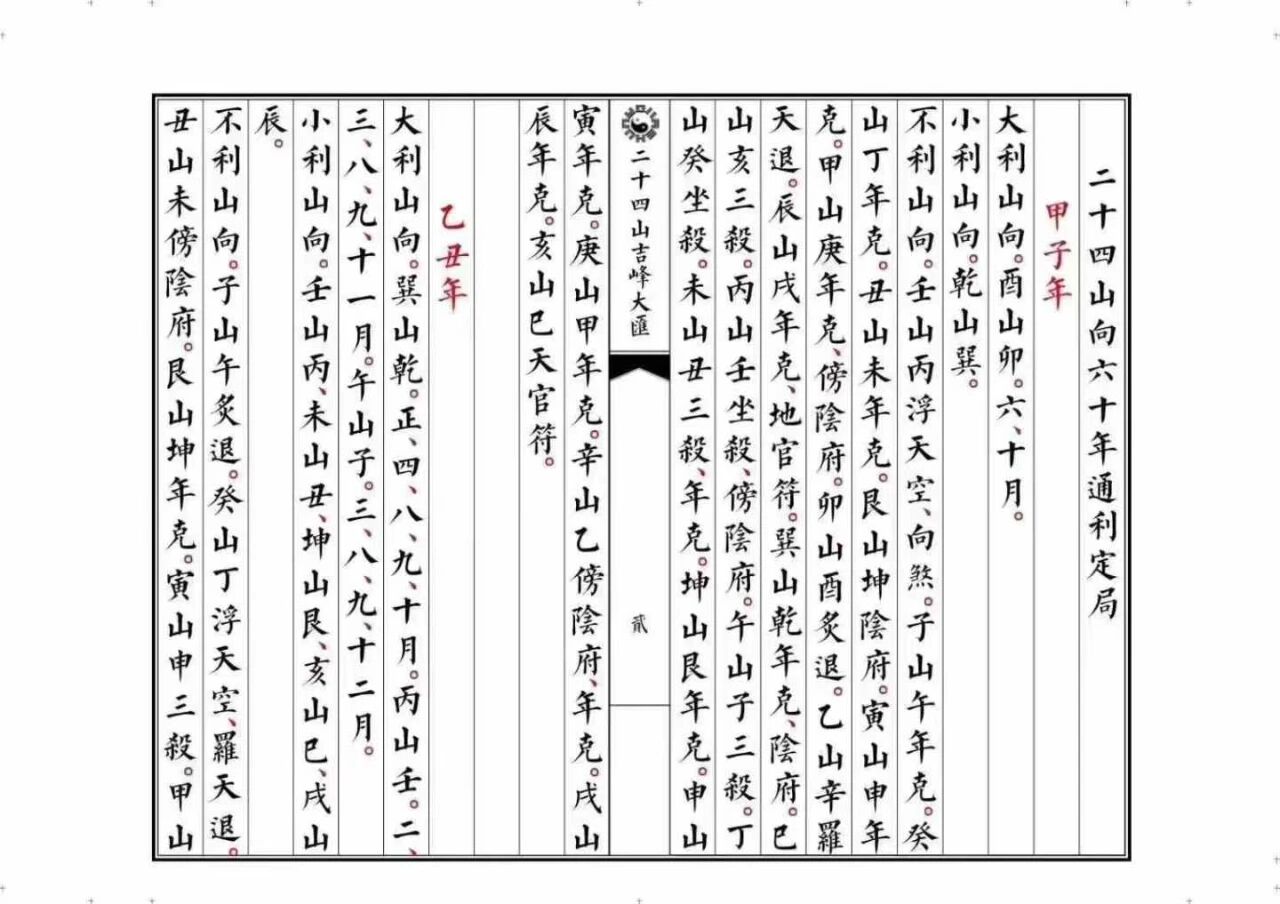 二十四山向六十年通利定局
甲子年
大利山向。酉山卯。六、十月。
小利山向。乾山巽。
不利山向。壬山丙浮天空、向煞。子山午年克。癸
山丁年克。丑山未年克。艮山坤陰府。寅山申年
克。甲山庚年克、傍陰府。卯山酉炙退。乙山辛羅
天退。辰山戌年克、地官符。巽山乾年克、陰府。巳
山亥三殺。丙山壬坐殺、傍陰府。午山子三殺。丁
山癸坐殺。未山丑三殺、年克。坤山艮年克。申山
二十四山吉峰大匯
貳
寅年克。庚山甲年克。辛山乙傍陰府、年克。戌山
辰年克。亥山巳天官符。
乙丑年
大利山向。巽山乾。正、四、八、九、十月。丙山壬。二、
三、八、九、十一月。午山子。三、八、九、十二月。
小利山向。壬山丙、未山丑、坤山艮、亥山巳、戌山
辰。
不利山向。子山午炙退。癸山丁浮天空、羅天退。
丑山未傍陰府。艮山坤年克。寅山申三殺。甲山